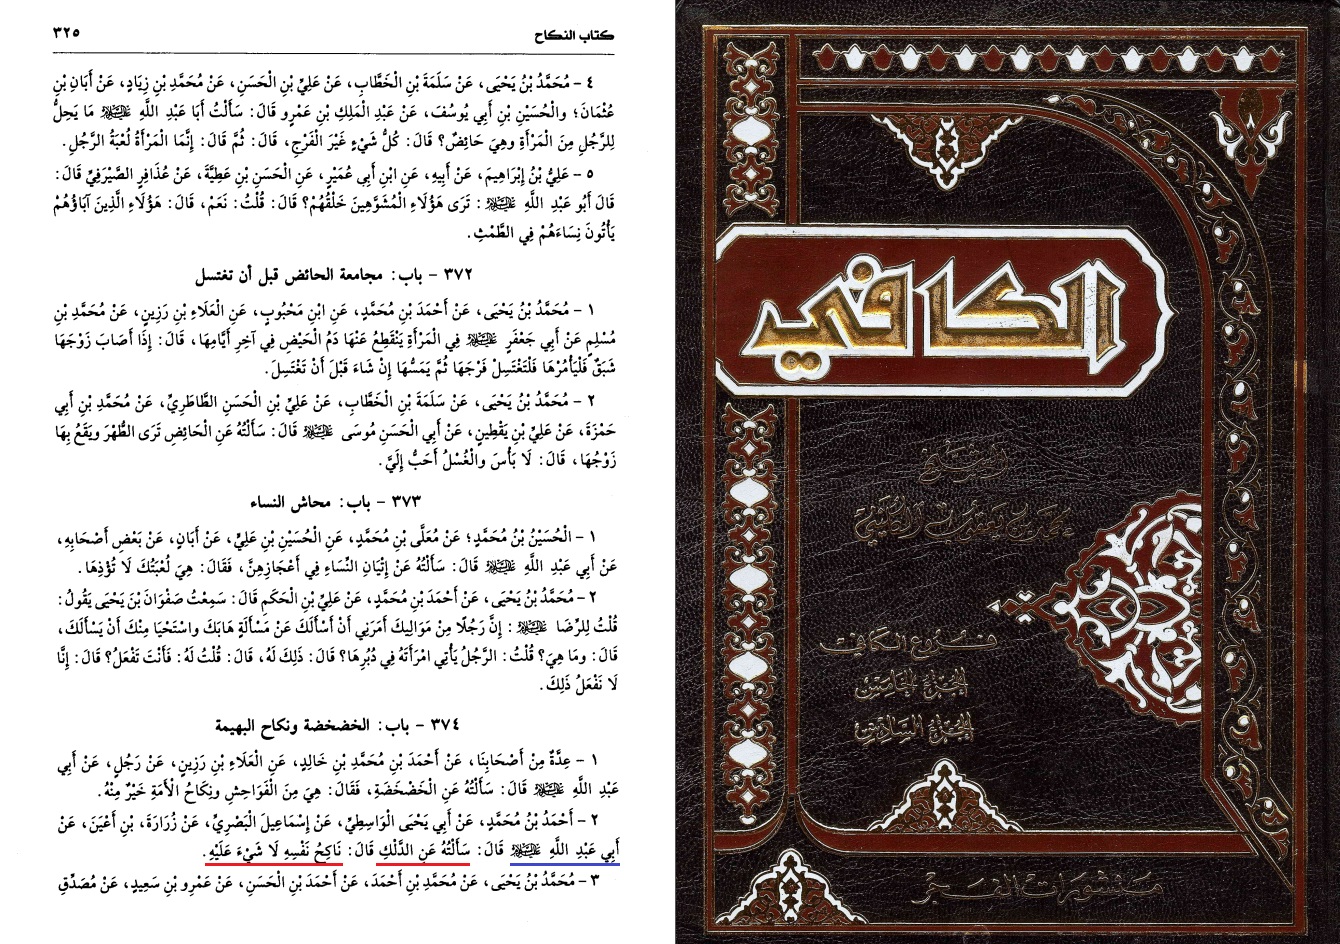 كتاب النكاح
٣٢٥
٤ - مُحَمَّدُ بْنُ يَحْيَى، عَنْ سَلَمَةَ بْنِ الْخَطَّابِ، عَنْ عَلِيِّ بْنِ الْحَسَنِ، عَنْ مُحَمَّدِ بْنِ زِيَادٍ، عَنْ أَبَانِ بْنِ
عُثْمَانَ؛ والْحُسَيْنِ بْنِ أَبِي يُوسُفَ، عَنْ عَبْدِ الْمَلِكِ بْنِ عَمْرٍو قَالَ: سَأَلْتُ أَبَا عَبْدِ اللَّهِ عليه السلام مَا يَحِلُّ
لِلرَّجُلِ مِنَ الْمَرْأَةِ وهِيَ حَائِضٌ؟ قَالَ: كُلُّ شَيْءٍ غَيْرَ الْفَرْجِ، قَالَ: ثُمَّ قَالَ: إِنَّمَا الْمَرْأَةُ لُعْبَةُ الرَّجُلِ.
٥ - عَلِيُّ بْنُ إِبْرَاهِيمَ، عَنْ أَبِيهِ، عَنِ ابْنِ أَبِي عُمَيْرٍ، عَنِ الْحَسَنِ بْنِ عَطِيَّةَ، عَنْ عُذَافِرٍ الصَّيْرَفِيِّ قَالَ:
قَالَ أَبُو عَبْدِ اللَّهِ عليه السلام: تَرَى هَؤُلَاءِ الْمُشَوَّهِينَ خَلْقُهُمْ؟ قَالَ: قُلْتُ: نَعَمْ، قَالَ: هَؤُلَاءِ الَّذِينَ آبَاؤُهُمْ
يَأْتُونَ نِسَاءَهُمْ فِي الطَّمْثِ.
٣٧٢ - باب: مجامعة الحائض قبل أن تغتسل
١ - مُحَمَّدُ بْنُ يَحْيَى، عَنْ أَحْمَدَ بْنِ مُحَمَّدٍ، عَنِ ابْنِ مَحْبُوبٍ، عَنِ الْعَلَاءِ بْنِ رَزِينٍ، عَنْ مُحَمَّدِ بْنِ
مُسْلِمٍ عَنْ أَبِي جَعْفَرٍ عليه السلام فِي الْمَرْأَةِ يَنْقَطِعُ عَنْهَا دَمُ الْحَيْضِ فِي آخِرِ أَيَّامِهَا، قَالَ: إِذَا أَصَابَ زَوْجَهَا
شَبَقٌ فَلْيَأْمُرْهَا فَلْتَغْتَسِلْ فَرْجَهَا ثُمَّ يَمَسُّهَا إِنْ شَاءَ قَبْلَ أَنْ تَغْتَسِلَ.
٢ - مُحَمَّدُ بْنُ يَحْيَى، عَنْ سَلَمَةَ بْنِ الْخَطَّابِ، عَنْ عَلِيِّ بْنِ الْحَسَنِ الطَّاطَرِيِّ، عَنْ مُحَمَّدِ بْنِ أَبِي
حَمْزَةَ، عَنْ عَلِيِّ بْنِ يَقْطِينٍ، عَنْ أَبِي الْحَسَنِ مُوسَى عليه السلام قَالَ: سَأَلْتُهُ عَنِ الْحَائِضِ تَرَى الطُّهْرَ ويَقَعُ بِهَا
زَوْجُهَا، قَالَ: لَا بَأْسَ والْغُسْلُ أَحَبُّ إِلَيَّ.
٣٧٣ - باب: محاش النساء
١ - الْحُسَيْنُ بْنُ مُحَمَّدٍ؛ عَنْ مُعَلَّى بْنِ مُحَمَّدٍ، عَنِ الْحُسَيْنِ بْنِ عَلِيٍّ، عَنْ أَبَانٍ، عَنْ بَعْضِ أَصْحَابِهِ،
عَنْ أَبِي عَبْدِ اللَّهِ عليه السلام قَالَ: سَأَلْتُهُ عَنْ إِتْيَانِ النِّسَاءِ فِي أَعْجَازِهِنَّ، فَقَالَ: هِيَ لُعْبَتُكَ لَا تُؤْذِهَا.
٢ - مُحَمَّدُ بْنُ يَحْيَى، عَنْ أَحْمَدَ بْنِ مُحَمَّدٍ، عَنْ عَلِيِّ بْنِ الْحَكَمِ قَالَ: سَمِعْتُ صَفْوَانَ بْنَ يَحْيَى يَقُولُ:
قُلْتُ لِلرِّضَا عليه السلام: إِنَّ رَجُلًا مِنْ مَوَالِيكَ أَمَرَنِي أَنْ أَسْأَلَكَ عَنْ مَسْأَلَةٍ هَابَكَ واسْتَحْيَا مِنْكَ أَنْ يَسْأَلَكَ،
قَالَ: ومَا هِيَ؟ قُلْتُ: الرَّجُلُ يَأْتِي امْرَأَتَهُ فِي دُبُرِهَا؟ قَالَ: ذَلِكَ لَهُ، قَالَ: قُلْتُ لَهُ: فَأَنْتَ تَفْعَلُ؟ قَالَ: إِنَّا
لَا نَفْعَلُ ذَلِكَ.
٣٧٤ - باب: الخضخضة ونكاح البهيمة
١ - عِدَّةٌ مِنْ أَصْحَابِنَا، عَنْ أَحْمَدَ بْنِ مُحَمَّدِ بْنِ خَالِدٍ، عَنِ الْعَلَاءِ بْنِ رَزِينٍ، عَنْ رَجُلٍ، عَنْ أَبِي
عَبْدِ اللَّهِ عليه السلام قَالَ: سَأَلْتُهُ عَنِ الْخَضْخَضَةِ، فَقَالَ: هِيَ مِنَ الْفَوَاحِشِ ونِكَاحُ الْأَمَةِ خَيْرٌ مِنْهُ.
٢ - أَحْمَدُ بْنُ مُحَمَّدٍ، عَنْ أَبِي يَحْيَى الْوَاسِطِيِّ، عَنْ إِسْمَاعِيلَ الْبَصْرِيِّ، عَنْ زُرَارَةَ، بْنِ أَعْيَنَ، عَنْ
أَبِي عَبْدِ اللَّهِ عليه السلام قَالَ: سَأَلْتُهُ عَنِ الدَّلْكِ قَالَ: نَاكِحُ نَفْسِهِ لَا شَيْءَ عَلَيْهِ.
٣ - مُحَمَّدُ بْنُ يَحْيَى، عَنْ مُحَمَّدِ بْنِ أَحْمَدَ، عَنْ أَحْمَدَ بْنِ الْحَسَنِ، عَنْ عَمْرِو بْنِ سَعِيدٍ، عَنْ مُصَدِّقِ
الكافي
محمد بن يعقوب الكليني
فروع الكافي
الجزء الخامس
الجزء السادس
منشورات الفجر